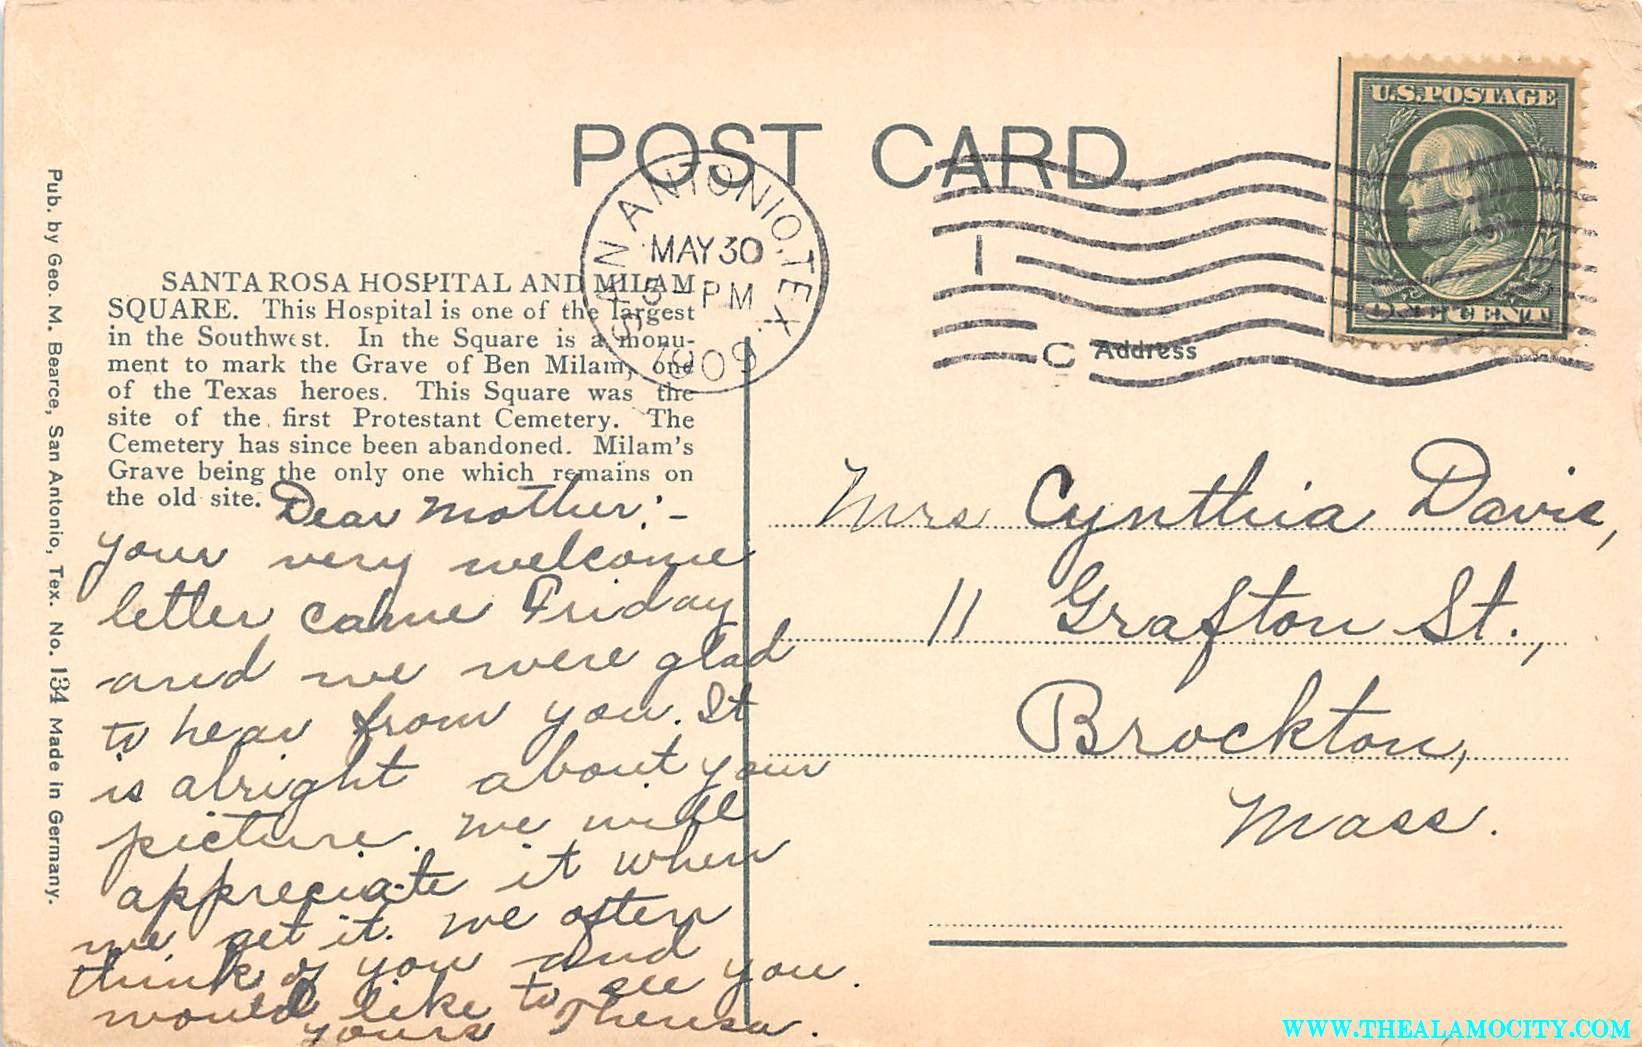 POST CARD
U.S. POSTAGE
ONE CENT
SAN ANTONIO, TEX.
MAY 30
5 - PM
1909
1
C
Address
Pub. by Geo. M. Bearce, San Antonio, Tex. No. 134 Made in Germany.
SANTA ROSA HOSPITAL AND MILAM
SQUARE. This Hospital is one of the largest
in the Southwest. In the Square is a monu-
ment to mark the Grave of Ben Milam, one
of the Texas heroes. This Square was the
site of the first Protestant Cemetery. The
Cemetery has since been abandoned. Milam's
Grave being the only one which remains on
the old site.
Dear Mother:-
your very welcome
letter came Friday
and we were glad
to hear from you. It
is alright about your
picture. we will
appreciate it when
we get it. we often
think of you and
would like to see you.
yours Theresa.
Mrs Cynthia Davis,
11 Grafton St.,
Brockton,
Mass.
WWW.THEALAMOCITY.COM